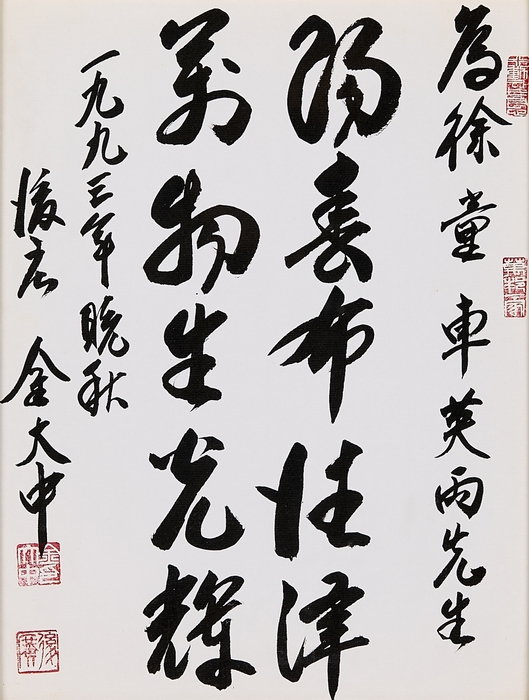 為徐堂 車英丙先生
陽春布德澤
萬物生光輝
一九九三年 晚秋
後広 金大中